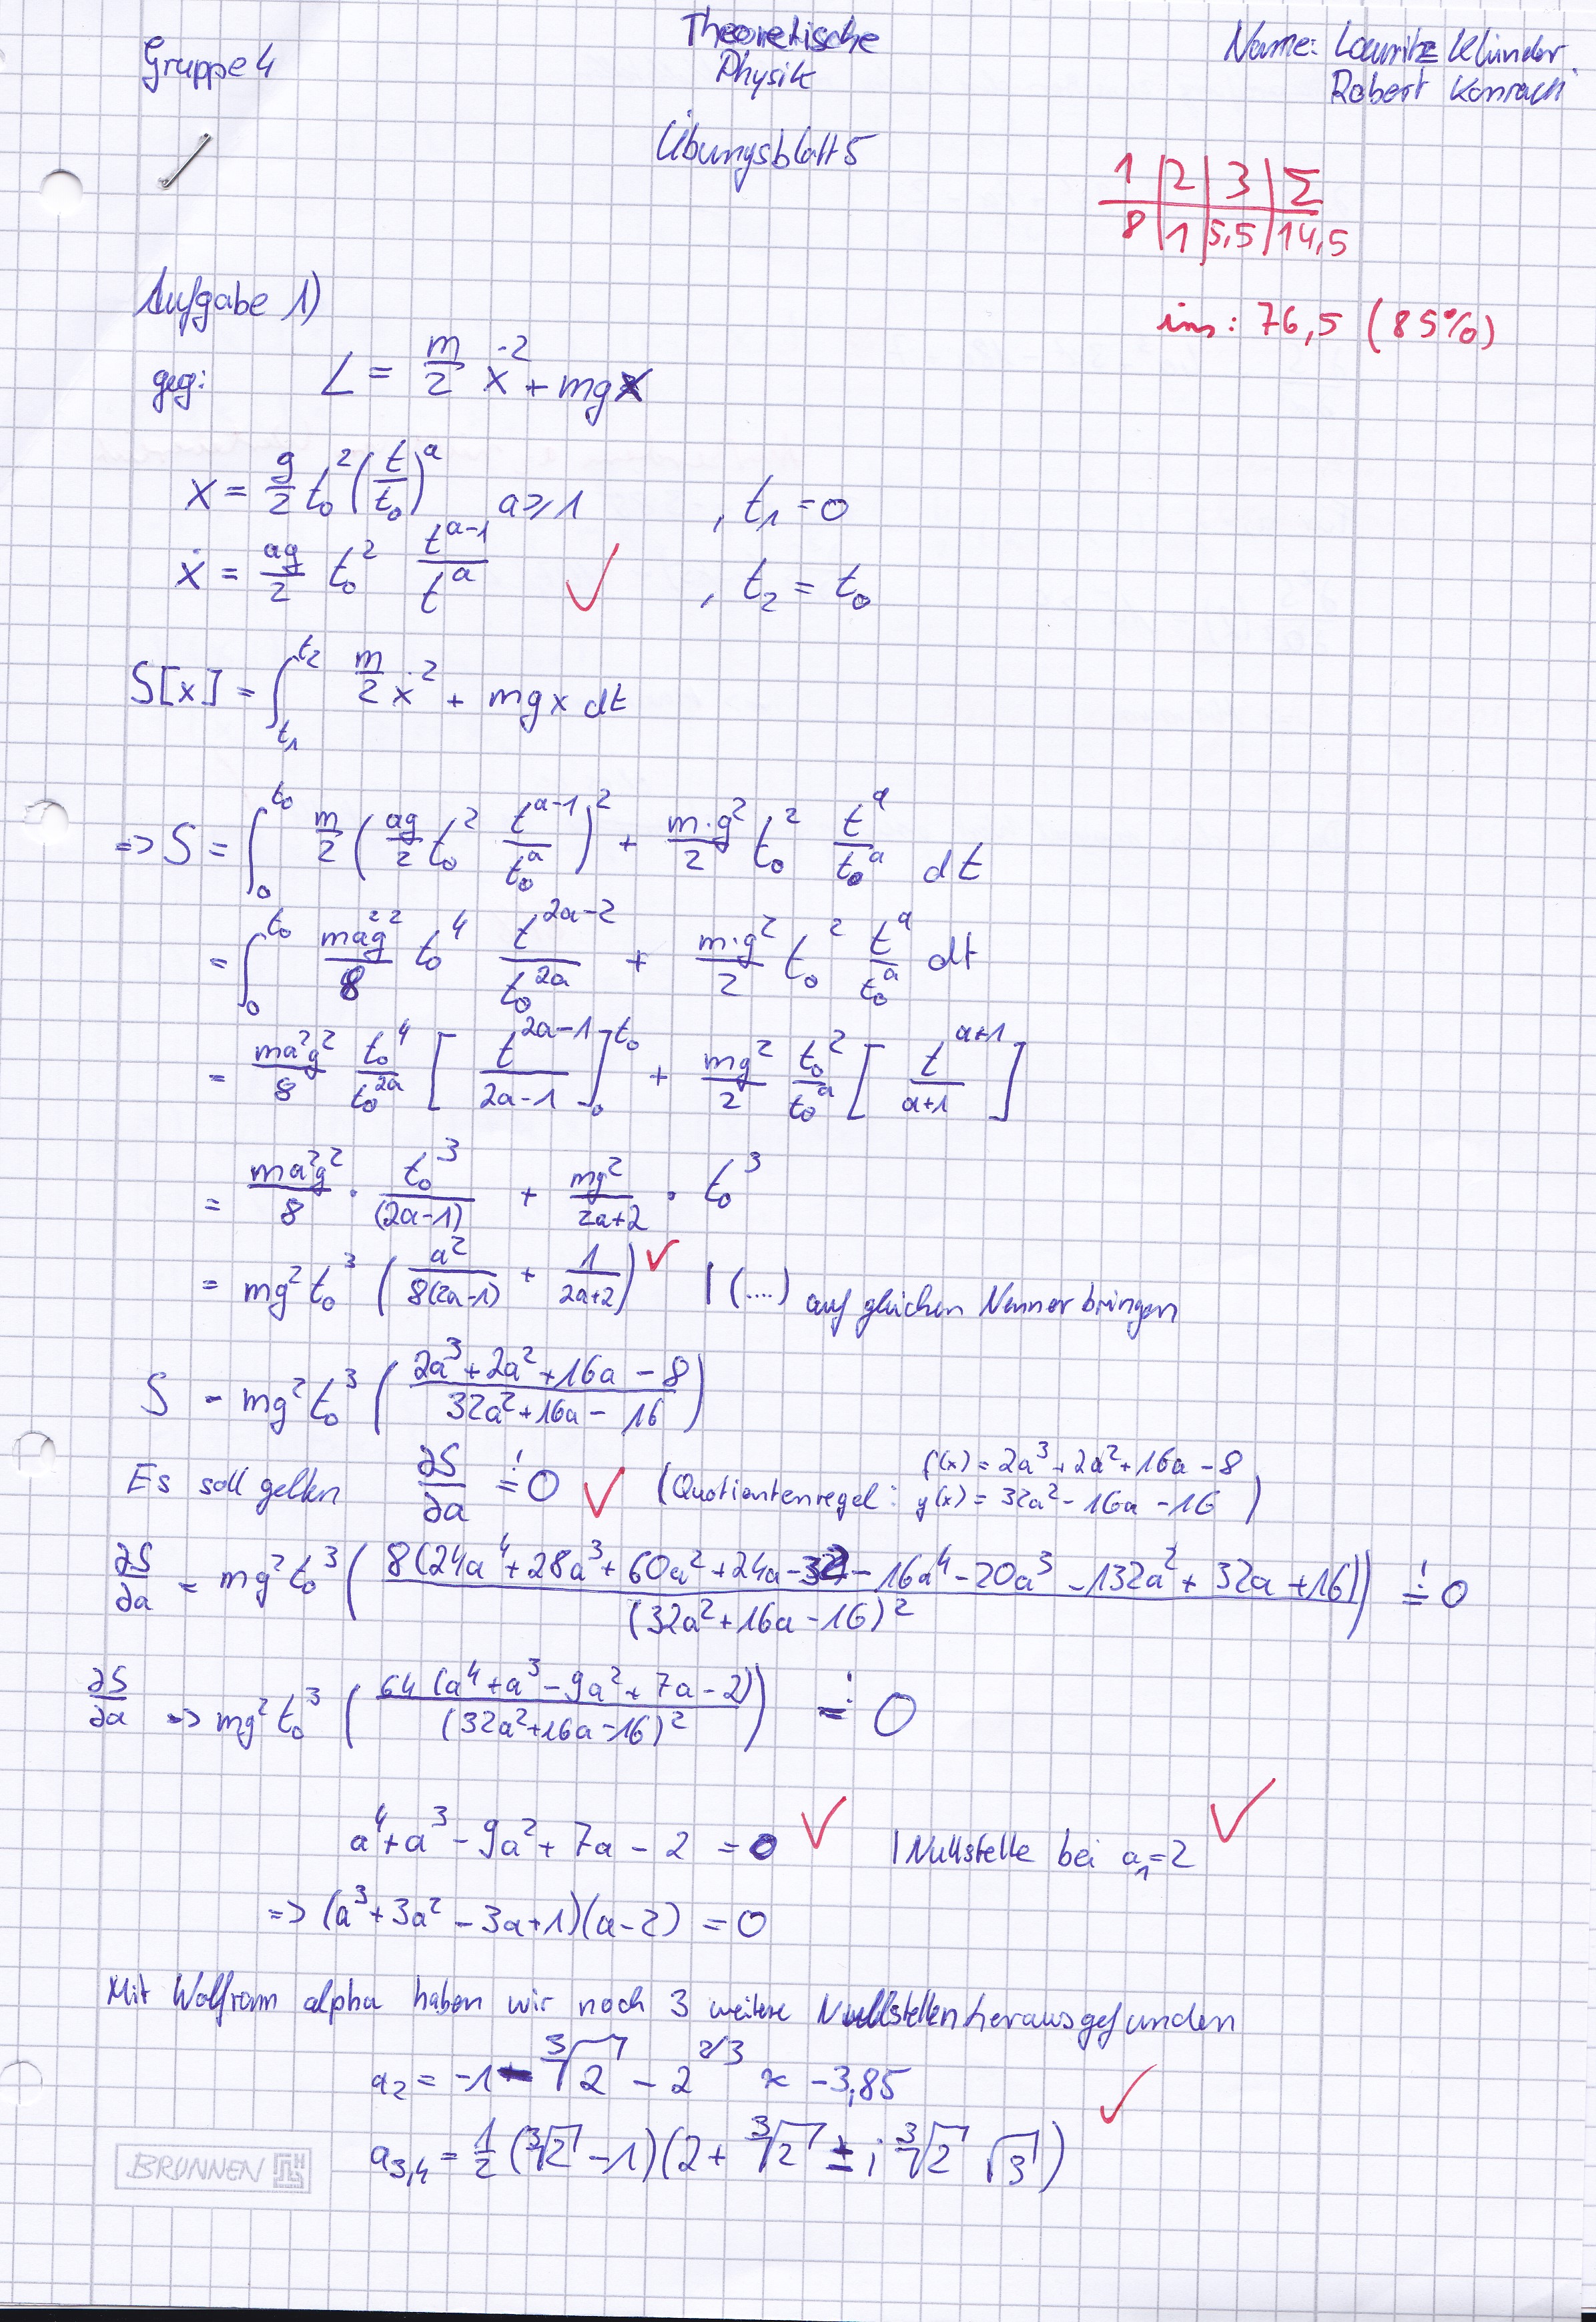 Gruppe 4
Theoretische
Physik
Übungsblatt 5
Name: Lauritz Klünder
Robert Konrad
1 | 2 | 3 | Σ
8 | 1 | 5,5 | 14,5
ins: 76,5 (85%)
Aufgabe 1)
geg: L = m/2 ẋ² + mgx
x = g/2 t₀² (t/t₀)^a a ≥ 1 , t₁ = 0
ẋ = ag/2 t₀² t^(a-1)/t^a ✓ , t₂ = t₀
S[x] = ∫_{t₁}^{t₂} m/2 ẋ² + mgx dt
=> S = ∫_0^{t₀} m/2 (ag/2 t₀² t^(a-1)/t₀^a)² + m·g²/2 t₀² t^a/t₀^a dt
= ∫_0^{t₀} ma²g²/8 t₀⁴ t^(2a-2)/t₀^(2a) + m·g²/2 t₀² t^a/t₀^a dt
= ma²g²/8 t₀⁴/t₀^(2a) [t^(2a-1)/(2a-1)]_0^{t₀} + mg²/2 t₀²/t₀^a [t^(a+1)/(a+1)]
= ma²g²/8 · t₀³/(2a-1) + mg²/(2a+2) · t₀³
= mg² t₀³ (a²/(8(2a-1)) + 1/(2a+2)) ✓ | (....) auf gleichen Nenner bringen
S = mg² t₀³ ((2a³+2a²+16a-8)/(32a²+16a-16))
Es soll gelten ∂S/∂a =! 0 ✓ (Quotientenregel: f(x) = 2a³+2a²+16a-8
y(x) = 32a²-16a-16)
∂S/∂a = mg² t₀³ (8(24a⁴+28a³+60a²+24a-32-16a⁴-20a³-132a²+32a+16)/(32a²+16a-16)²) =! 0
∂S/∂a => mg² t₀³ (64(a⁴+a³-9a²+7a-2)/(32a²+16a-16)²) =! 0
a⁴+a³-9a²+7a-2 = 0 ✓ | Nullstelle bei a₁=2 ✓
=> (a³+3a²-3a+1)(a-2) = 0
Mit Wolfram alpha haben wir noch 3 weitere Nullstellen herausgefunden
a₂ = -1 - ∛2 - 2^(2/3) ≈ -3,85
a₃,₄ = 1/2 (∛2 - 1)(2 + ∛2 ± i ∛2 √3) ✓
BRUNNEN